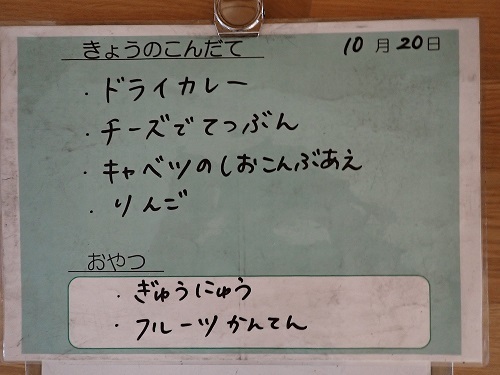 きょうのこんだて 10月20日
・ドライカレー
・チーズでてつぶん
・キャベツのしおこんぶあえ
・りんご
おやつ
・ぎゅうにゅう
・フルーツかんてん